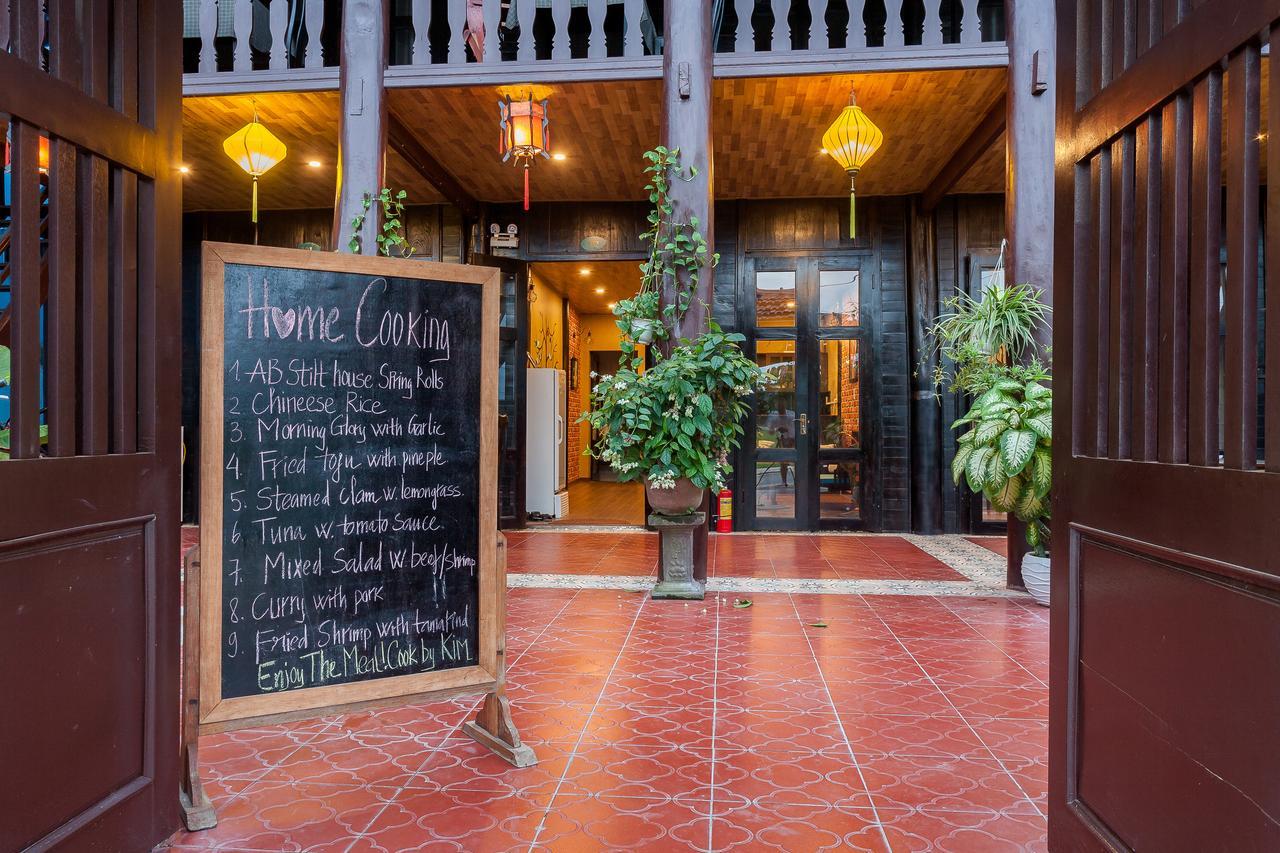 Home Cooking
1. AB Stilt house Spring Rolls
2 Chineese Rice
3. Morning Glory with Garlic
4. Fried tofu with pineple
5. Steamed clam w. lemongrass.
6. Tuna w. tomato sauce.
7. Mixed Salad w beef/shrimp
8. Curry with pork
9. Fried Shrimp with tamarind
Enjoy The Meal! Cook by KIM